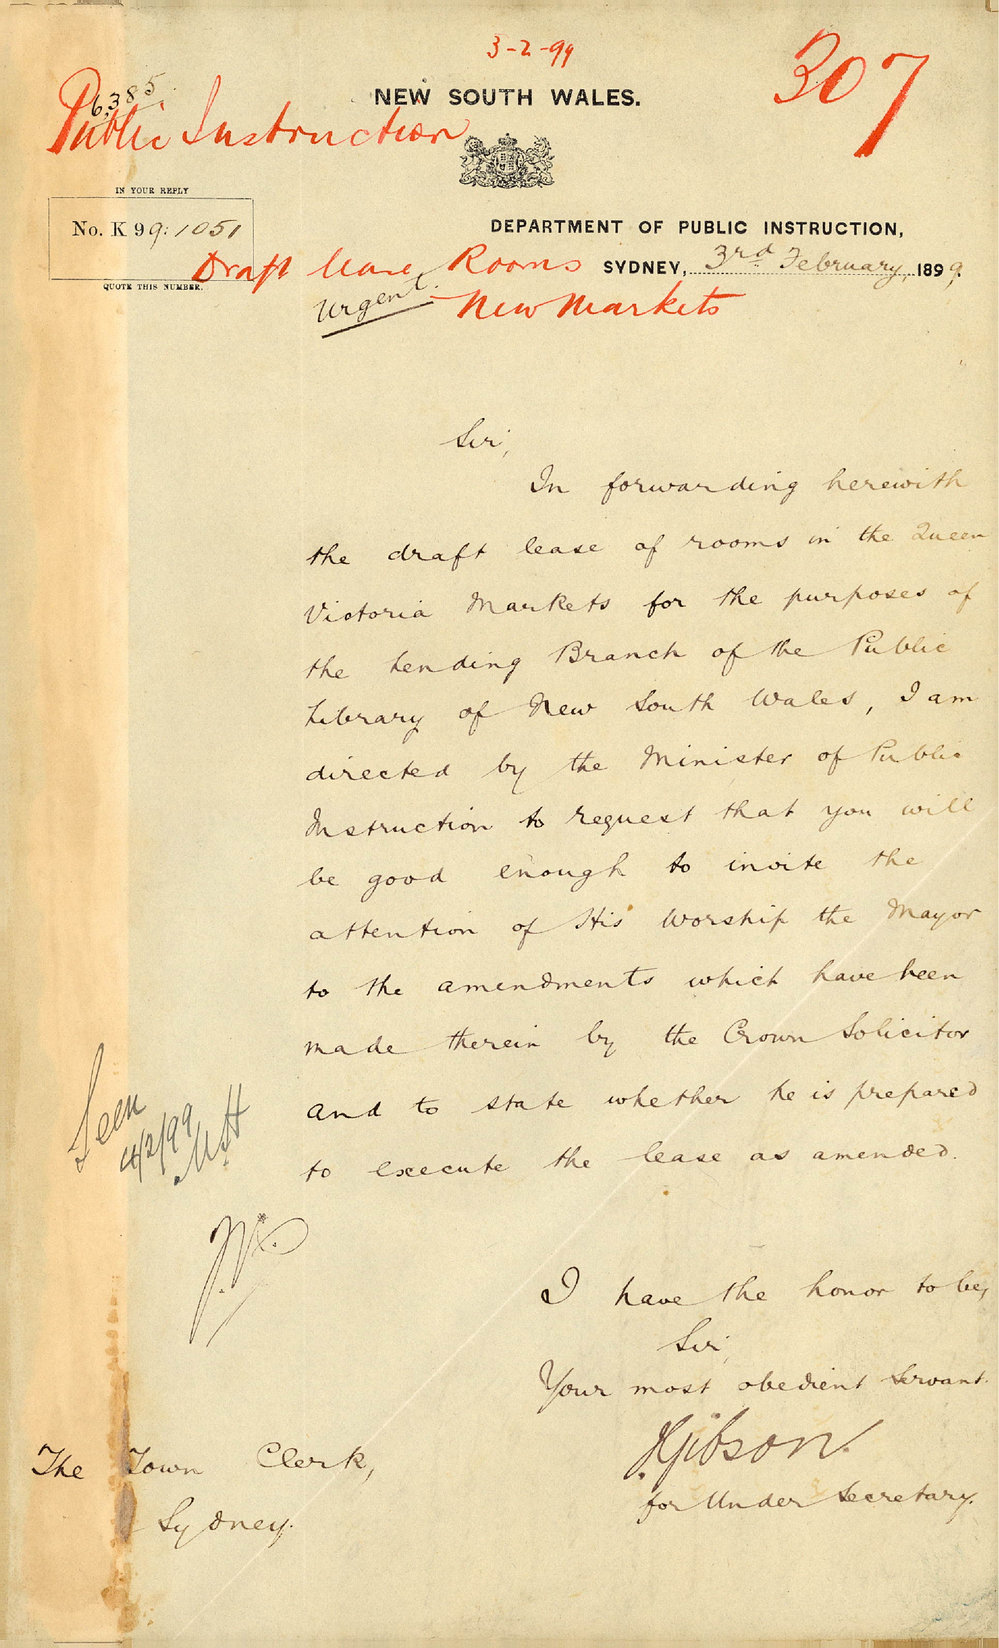 3-2-99
307
6385
NEW SOUTH WALES.
Public Instruction
IN YOUR REPLY
No. K 99: 1051
QUOTE THIS NUMBER.
DEPARTMENT OF PUBLIC INSTRUCTION,
SYDNEY, 3rd February, 1899.
Draft Lease Rooms
Urgent.
New Markets
Sir,
In forwarding herewith
the draft lease of rooms in the Queen
Victoria Markets for the purposes of
the Lending Branch of the Public
Library of New South Wales, I am
directed by the Minister of Public
Instruction to request that you will
be good enough to invite the
attention of His Worship the Mayor
to the amendments which have been
made therein by the Crown Solicitor
and to state whether he is prepared
to execute the lease as amended.
Seen
4/2/99
I have the honor to be,
Sir,
Your most obedient Servant.
J Gibson.
for Under Secretary.
The Town Clerk,
Sydney.